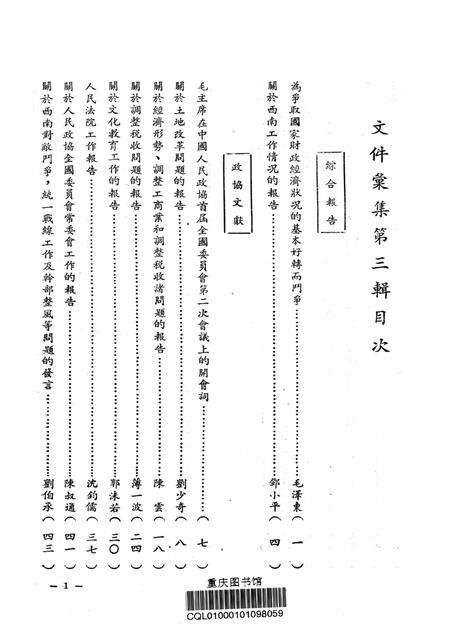 文件彙集第三輯目次
綜合報告
為爭取國家財政經濟狀況的基本好轉而鬥爭……毛澤東(一)
關於西南工作情况的報告……鄧小平(四)
政協文獻
毛主席在中國人民政協首屆全國委員會第二次會議上的開會詞……(七)
關於土地改革問題的報告……劉少奇(八)
關於經濟形勢、調整工商業和調整稅收諸問題的報告……陳雲(一八)
關於調整稅收問題的報告……薄一波(二四)
關於文化教育工作的報告……郭沫若(三〇)
人民法院工作報告……沈鈞儒(三七)
關於人民政協全國委員會常委會工作的報告……陳叔通(四一)
關於西南對敵鬥爭，統一戰線工作及幹部整風等問題的發言……劉伯承(四三)
— 1 —
重庆图书馆
CQL01000101098059